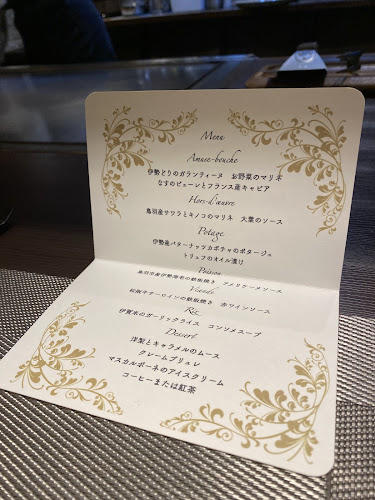 Menu
Amuse-bouche
伊勢どりのガランティーヌ　お野菜のマリネ
なすのピューレとフランス産キャビア
Hors-d'œuvre
鳥羽産サワラとキノコのマリネ　大葉のソース
Potage
伊勢産バターナッツカボチャのポタージュ
トリュフのオイル漬け
Poisson
鳥羽市産伊勢海老の鉄板焼き　アメリケーヌソース
Viande
松阪牛サーロインの鉄板焼き　赤ワインソース
Riz
伊賀米のガーリックライス　コンソメスープ
Dessert
洋梨とキャラメルのムース
クレームブリュレ
マスカルポーネのアイスクリーム
コーヒーまたは紅茶